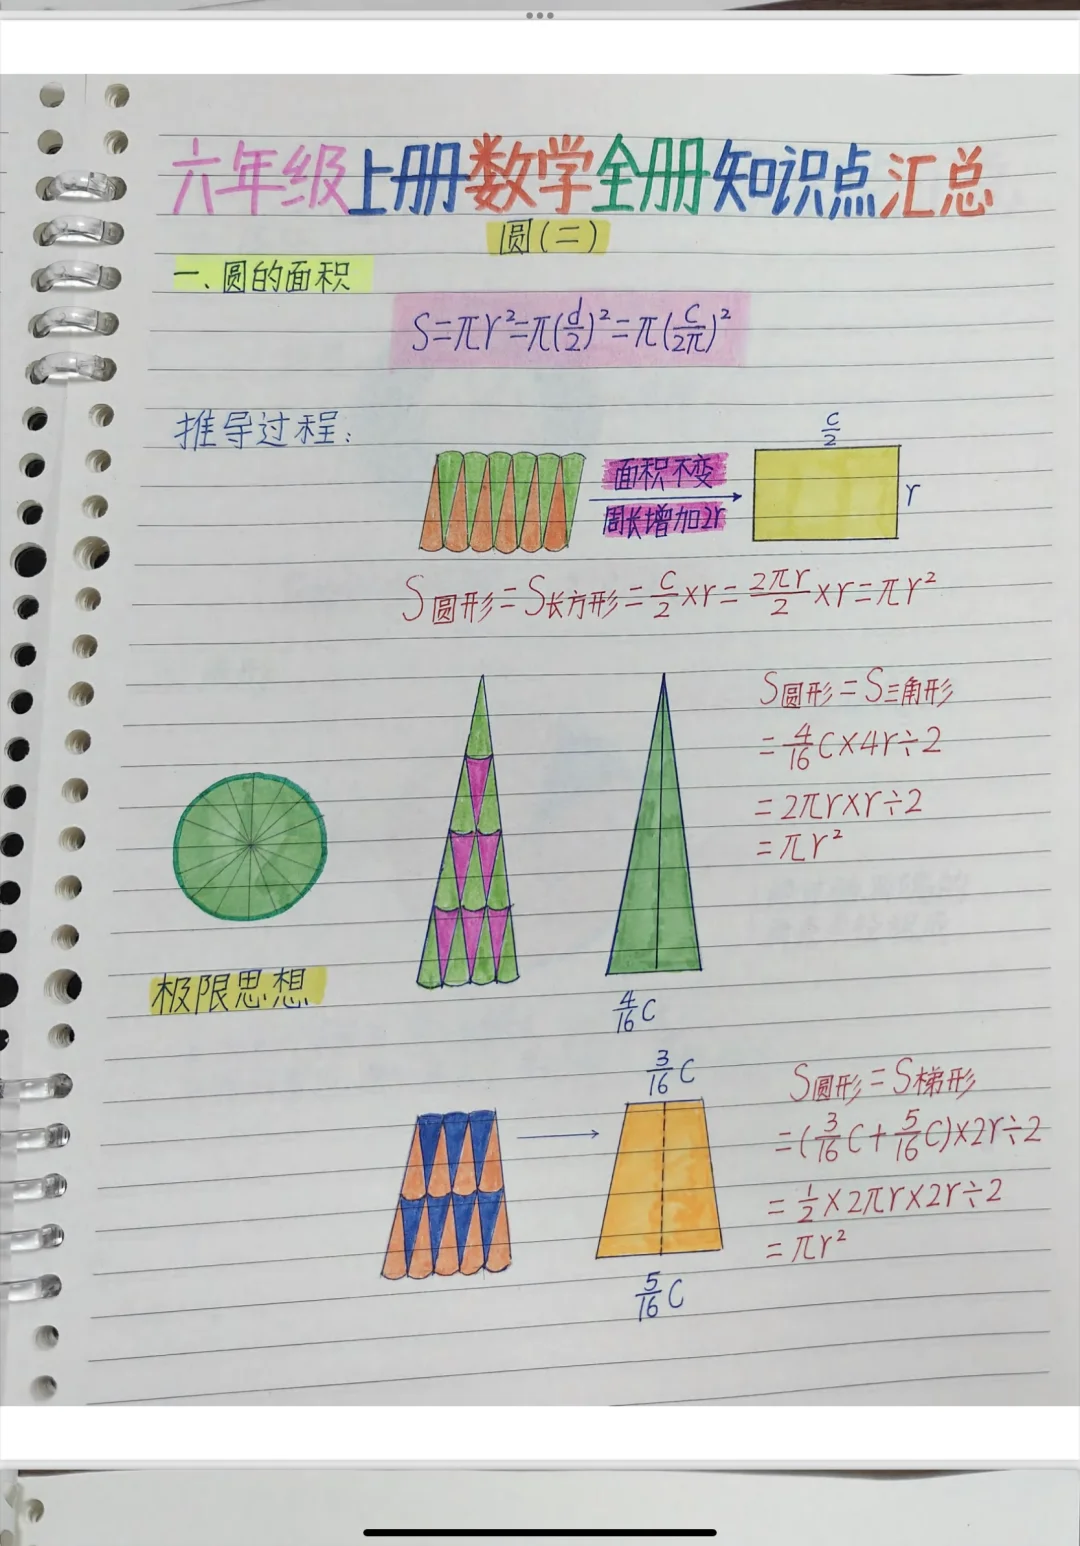 六年级上册数学全册知识点汇总
圆(二)
一、圆的面积
S=πr²=π(d/2)²=π(C/2π)²
推导过程:
面积不变
周长增加2r
C/2
r
S圆形=S长方形=C/2×r=2πr/2×r=πr²
S圆形=S三角形
=4/16C×4r÷2
=2πr×r÷2
=πr²
极限思想
4/16C
3/16C
S圆形=S梯形
=(3/16C+5/16C)×2r÷2
=1/2×2πr×2r÷2
=πr²
5/16C